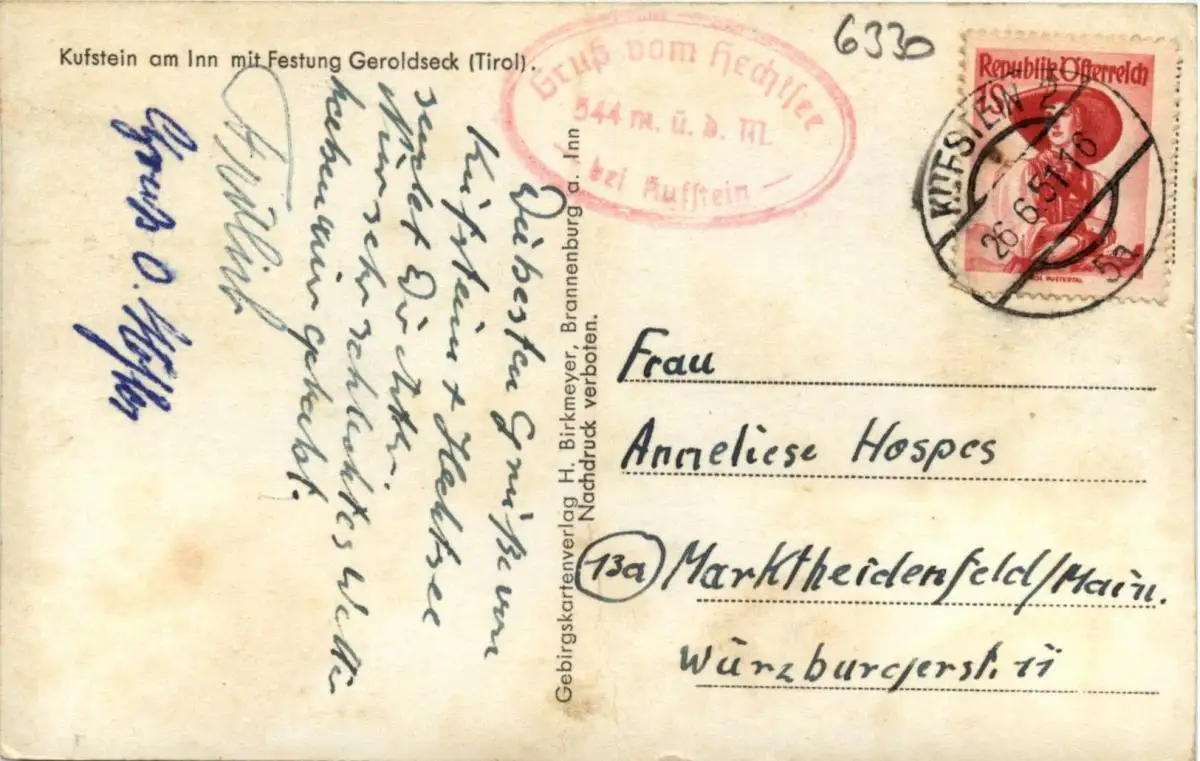 Kufstein am Inn mit Festung Geroldseck (Tirol).
Gruß vom Hechtsee
544 m. ü. d. M.
— bei Kufstein —
6330
Republik Österreich
KUFSTEIN 2
26.6.51 16
5a
besten Grüße vom
Kufstein + Hechtsee
sendet Dir
Nur sehr schlechtes Wetter
haben wir gehabt.
Gruß O.
Gebirgskartenverlag H. Birkmeyer, Brannenburg a. Inn
Nachdruck verboten.
Frau
Anneliese Hospes
13a Marktheidenfeld/Main.
Würzburgerst. 11